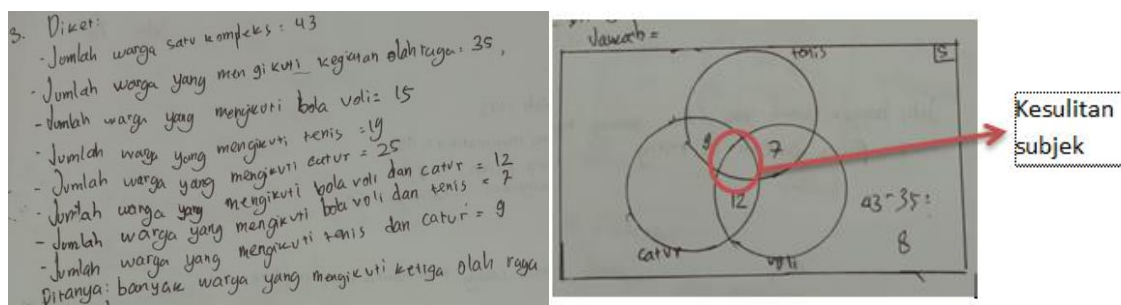 3. Diket:
- Jumlah warga satu kompleks : 43
- Jumlah warga yang mengikuti kegiatan olah raga : 35,
- Jumlah warga yang mengikuti bola voli = 15
- Jumlah warga yang mengikuti tenis = 19
- Jumlah warga yang mengikuti catur = 25
- Jumlah warga yang mengikuti bola voli dan catur = 12
- Jumlah warga yang mengikuti bola voli dan tenis = 7
- Jumlah warga yang mengikuti tenis dan catur = 9
Ditanya : banyak warga yang mengikuti ketiga olah raga
Jawab =
tenis
S
9
7
12
43-35 =
8
catur
voli
Kesulitan
subjek